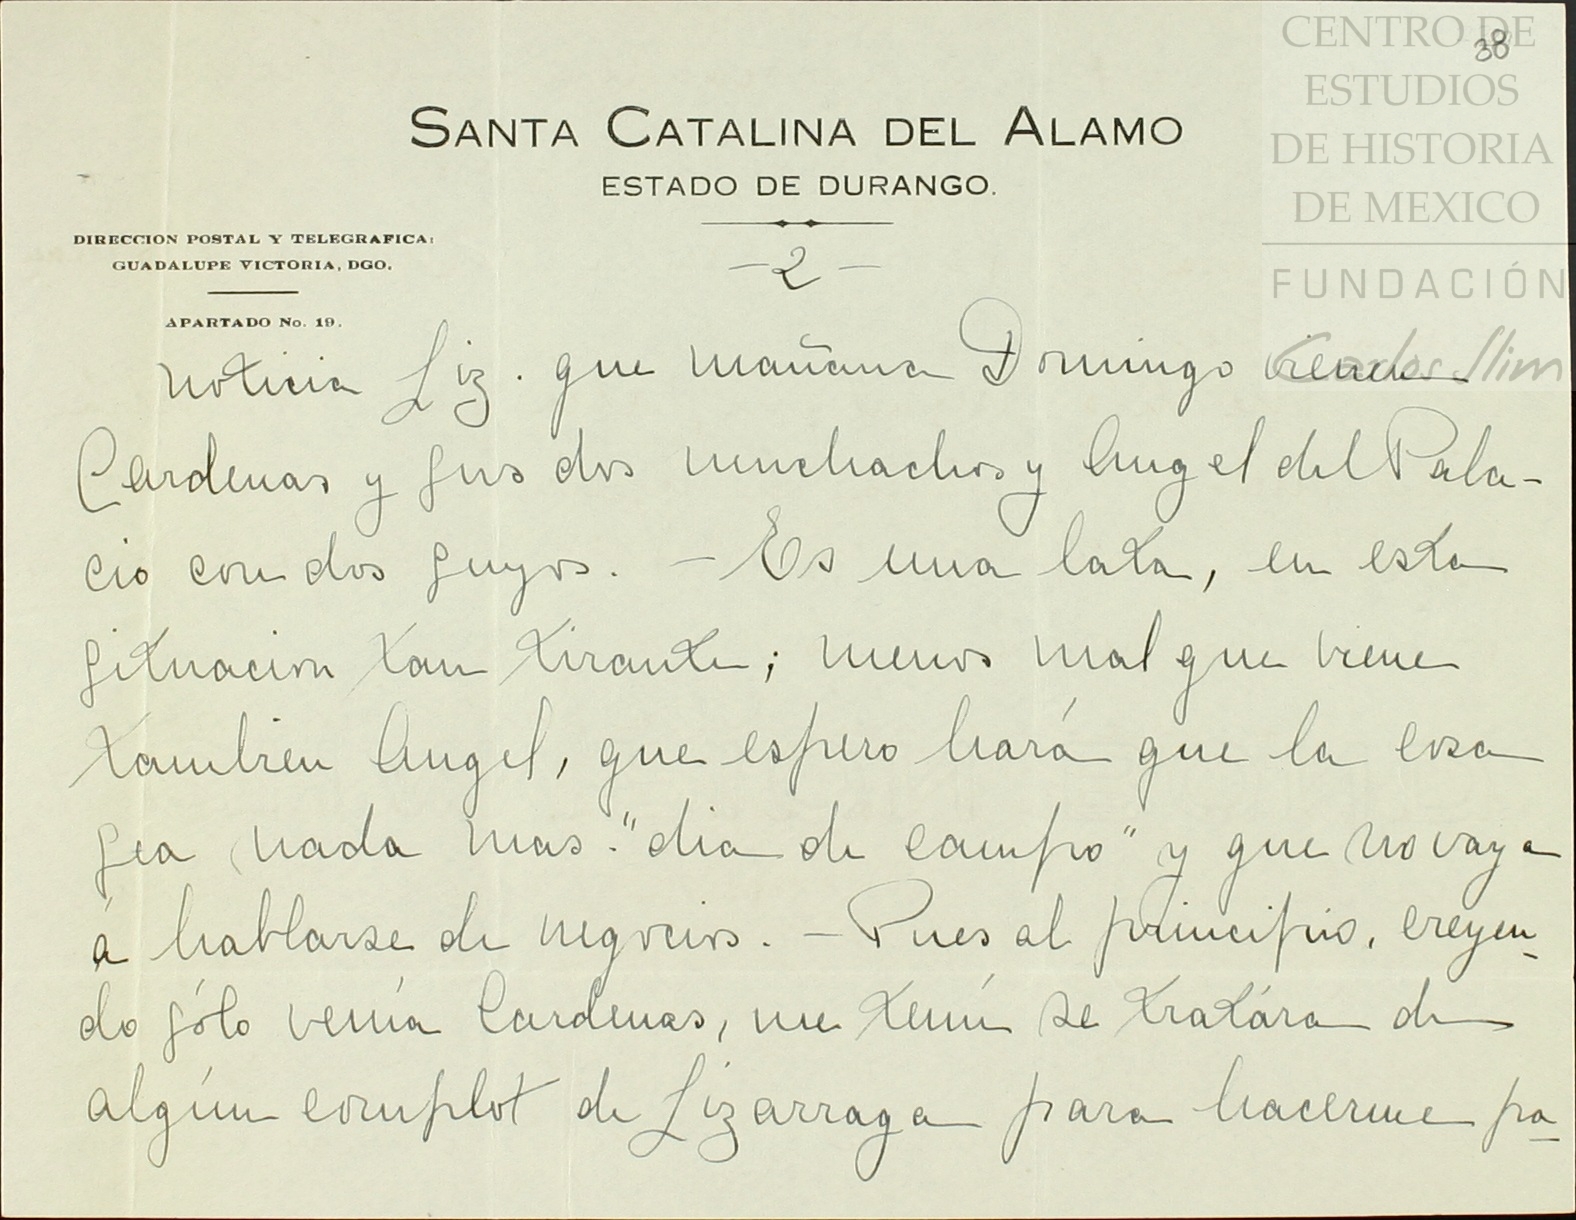 CENTRO DE
ESTUDIOS
DE HISTORIA
DE MEXICO
FUNDACIÓN
Carlos Slim
38
SANTA CATALINA DEL ALAMO
ESTADO DE DURANGO.
DIRECCION POSTAL Y TELEGRAFICA:
GUADALUPE VICTORIA, DGO.
APARTADO No. 19.
—2—
noticia Liz. que mañana Domingo vienen
Cardenas y sus dos muchachos y Angel del Pala-
cio con dos suyos. — Es una lata, en esta
situacion tan tirante; menos mal que viene
tambien Angel, que espero hará que la cosa
sea nada mas "dia de campo" y que no vaya
á hablarse de negocios. — Pues al principio, creyen-
do sólo venía Cardenas, me temí se tratára de
algún complot de Lizarraga para hacerme pa-